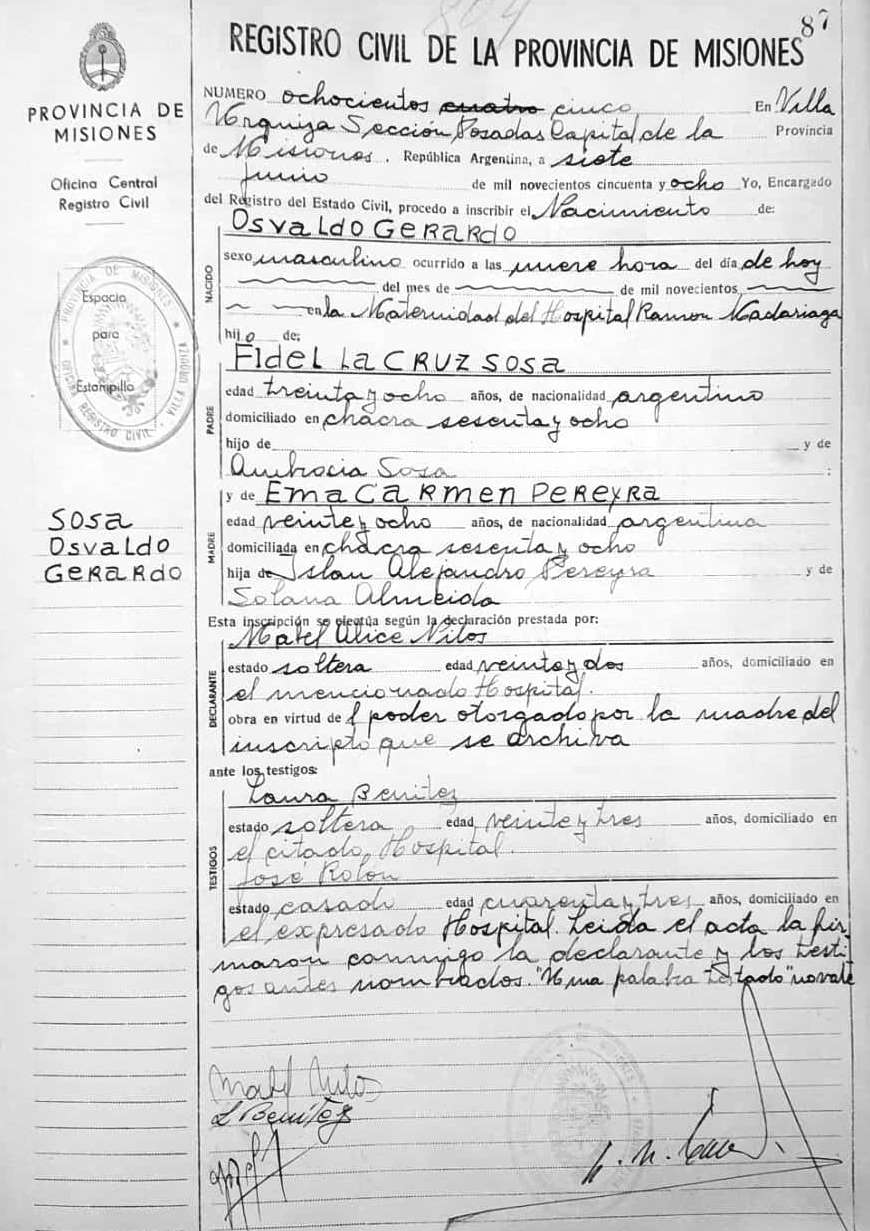 804
87
REGISTRO CIVIL DE LA PROVINCIA DE MISIONES
PROVINCIA DE
MISIONES
Oficina Central
Registro Civil
PROVINCIA DE MISIONES
OFICINA REGISTRO CIVIL - VILLA URQUIZA
Espacio
para
Estampilla
SOSA
OSVALDO
GERARDO
NUMERO ochocientos cuatro cinco En Villa
Urquiza Sección Posadas Capital de la Provincia
de Misiones. República Argentina, a siete
junio de mil novecientos cincuenta y ocho Yo, Encargado
del Registro del Estado Civil, procedo a inscribir el Nacimiento de:
NACIDO
OSVALDO GERARDO
sexo masculino ocurrido a las nueve hora del día de hoy
del mes de de mil novecientos
en la Maternidad del Hospital Ramon Madariaga
hijo de:
PADRE
FIDEL LA CRUZ SOSA
edad treinta y ocho años, de nacionalidad argentino
domiciliado en chacra sesenta y ocho
hijo de y de
Ambrocia Sosa :
MADRE
y de EMA CARMEN PEREYRA
edad veinte y ocho años, de nacionalidad argentina
domiciliada en chacra sesenta y ocho
hija de Alejandro Pereyra y de
Solana Almeida
Esta inscripción se efectúa según la declaración prestada por:
DECLARANTE
Mabel Alice Nilos
estado soltera edad veinte y dos años, domiciliado en
el mencionado Hospital.
obra en virtud de l poder otorgado por la madre del
inscripto que se archiva
ante los testigos:
TESTIGOS
Laura Benitez
estado soltera edad veinte y tres años, domiciliado en
el citado Hospital.
José Rolon
estado casado edad cuarenta y tres años, domiciliado en
el expresado Hospital. Leida el acta la fir-
maron conmigo la declarante y los testi-
gos antes nombrados. "Una palabra testado" no vale
Mabel Nilos
L Benitez